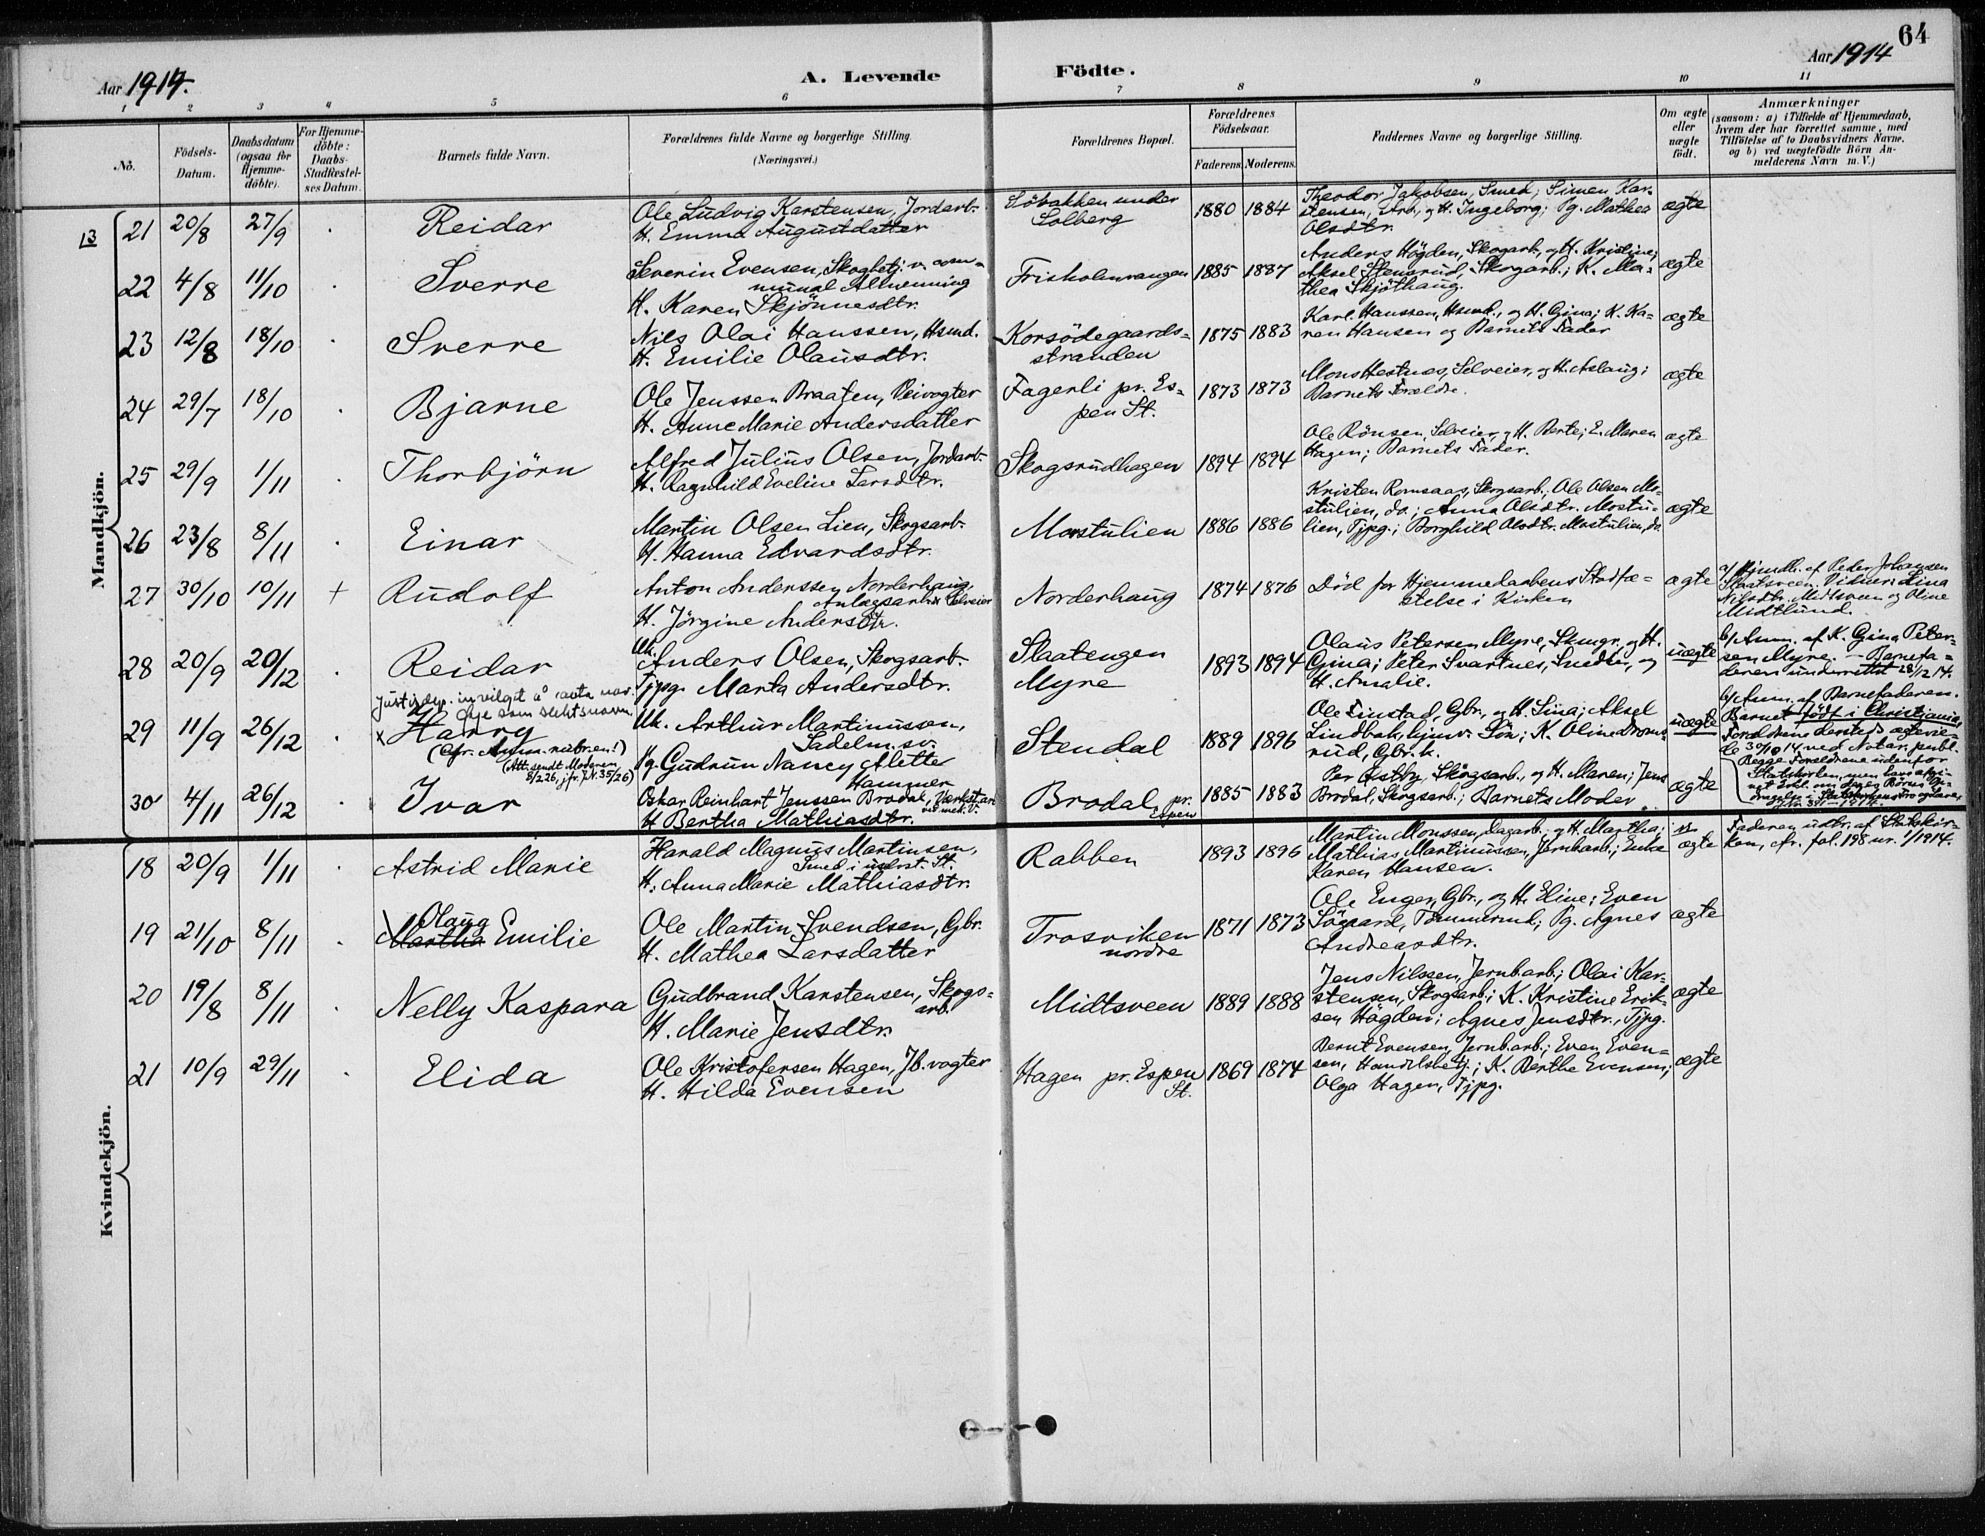 64
Aar 1914.
A. Levende Födte.
Aar 1914
1 2 3 4 5 6 7 8 9 10 11
No.
Födsels-Datum.
Daabsdatum (ogsaa for Hjemme-döbte).
For Hjemme-döbte: Daabs-Stadfæstel-ses Datum.
Barnets fulde Navn.
Forældrenes fulde Navne og borgerlige Stilling.
(Næringsvei.)
Forældrenes Bopæl.
Forældrenes Födselsaar.
Faderens. Moderens.
Faddernes Navne og borgerlige Stilling.
Om ægte eller uægte födt.
Anmærkninger
(saasom: a) i Tilfælde af Hjemmedaab,
hvem der har forrettet samme, med
Tilföielse af to Daabsvidners Navne,
og b) ved uægtefödte Börn An-
melderens Navn m. V.)
Mandkjön.
13
21 20/8 27/9 Reidar
Ole Ludvig Karstensen, Jordarb.
H. Emma Augustdatter
Löbakken under
Solberg
1880 1884
Theodor Jakobsen, Smed; Simen Kar-
stensen, Arb., og H. Ingeborg; Pg. Mathea
Olsdtr.
ægte
22 4/8 11/10 Sverre
Severin Evensen, Skogbetj. v. com-
munal Almenning
H. Karen Skjönnesdtr.
Frisholmvangen
1885 1887
Anders Högden, Skogarb., og H. Kristine;
Aksel Stensrud, Skogarb.; K. Ma-
thea Skjöthaug.
ægte
23 12/8 18/10 Sverre
Nils Olai Hanssen, Hsmd.
H. Emilie Olausdtr.
Korsödegaards-
stranden
1875 1883
Karl Hanssen, Hsmd., og H. Gina; K. Ka-
ren Hansen og Barnets Fader
ægte
24 29/7 18/10 Bjarne
Ole Jenssen Braaten, Veivogter
H. Anne Marie Andersdatter
Fagerli pr. Es-
pen St.
1873 1873
Mons Hestnes, Selveier, og H. Aslaug;
Barnets Forældre.
ægte
25 29/9 1/11 Thorbjörn
Alfred Julius Olsen, Jordarb.
H. Ragnhild Eveline Larsdtr.
Skogsrudhagen
1894 1894
Ole Rönsen, Selveier, og H. Berte; E. Maren
Hagen; Barnets Fader.
ægte
26 23/8 8/11 Einar
Martin Olsen Lien, Skogsarb.
H. Hanna Edvardsdtr.
Mostulien
1886 1886
Kristen Romsaas, Skogsarb.; Ole Olsen Mo-
stulien, do.; Anna Olsdtr. Mostu-
lien, Tjpg.; Borghild Olsdtr. Mostulien, do.
ægte
27 30/10 10/11 + Rudolf
Anton Anderssen Norderhaug,
Anlægsarb. og Selveier
H. Jörgine Andersdtr.
Norderhaug
1874 1876
Död för Hjemmedaabens Stadfæ-
stelse i Kirken
ægte
a/ Hjemd. af Peder Johansen
Vidner: Lina
Nilsdtr. Midtsveen og Oline
Midtlund.
28 20/9 20/12 Reidar
Uk.
Anders Olsen, Skogsarb.
Tjpg. Marta Andersdtr.
Slaatengen
Myre
1893 1894
Olaus Petersen Myre, Skmgr., og H.
Gina; Peter Svartnes, Snedker, og
H. Amalie.
uægte
b/ Anm. af K. Gina Peter-
sen Myre. – Barnefa-
deren underrettet 28/12 14.
Justisdep. innvilget å anta nav.
som slektsnavn.
29 11/9 26/12 x Harry
(Cfr. Anm. rubrien!)
(Att. sendt Moderen
8/2 26, jfr. J.N. 35/26)
Uk. Arthur Martinussen,
Sadelm. sv.
Pg. Gudrun Nancy Alette
Hammer
Stendal
1889 1896
Ole Linstad, Gbr., og H. Lina; Aksel
Lindbak, hjmv. Sön; K. Oline Droms-
rud, Gbr. k.
uægte
b/ Anm. af Barnefaderen.
Barnet födt i Christiania.
Forældrene dersteds ægtevie-
de 30/10 14 ved Notar. publ.
Begge Forældrene udenfor
Statskirken, men
30 4/11 26/12 Ivar
Oskar Reinhart Jenssen Brodal, Værkstarb.
H. Bertha Mathiasdtr.
Brodal, pr.
Espen
1885 1883
Per Østby, Skogsarb., og H. Maren; Jens
Brodal, Skogsarb.; Barnets Moder.
ægte
Kvindekjön.
18 20/9 1/11 Astrid Marie
Harald Magnus Martinsen,
Smed i
H. Anna Marie Mathiasdtr.
Rabben
1893 1896
Martin Monssen, Dagarb., og H. Martha;
Mathias Martinussen, Jernbarb.; Enke
Karen Hansen.
ægte
Faderen udtr. af Statskir-
ken, cfr. fol. 198 nr. 1/1914.
19 21/10 8/11 Olaug
Martha Emilie
Ole Martin Svendsen, Gbr.
H. Mathea Larsdatter
Trosviken
nordre
1871 1873
Ole Enger, Gbr., og H. Eline; Even
Sögaard, Tömmermd.; Pg. Agnes
Andreasdtr.
ægte
20 19/8 8/11 Nelly Kaspara
Gudbrand Karstensen, Skogs-
arb.
H. Marie Jensdtr.
Midtsveen
1889 1888
Jens Nilssen, Jernb.arb.; Olai Kar-
stensen, Skogsarb.; K. Kristine Erik-
sen Högden; Agnes Jensdtr., Tjpg.
ægte
21 10/9 29/11 Elida
Ole Kristofersen Hagen, Jb.vogter
H. Hilda Evensen
Hagen pr. Espen
St.
1869 1874
Bernt Evensen, Jernb.arb.; Even Even-
sen, Handelsbetj.; K. Berthe Evensen;
Olga Hagen, Tjpg.
ægte